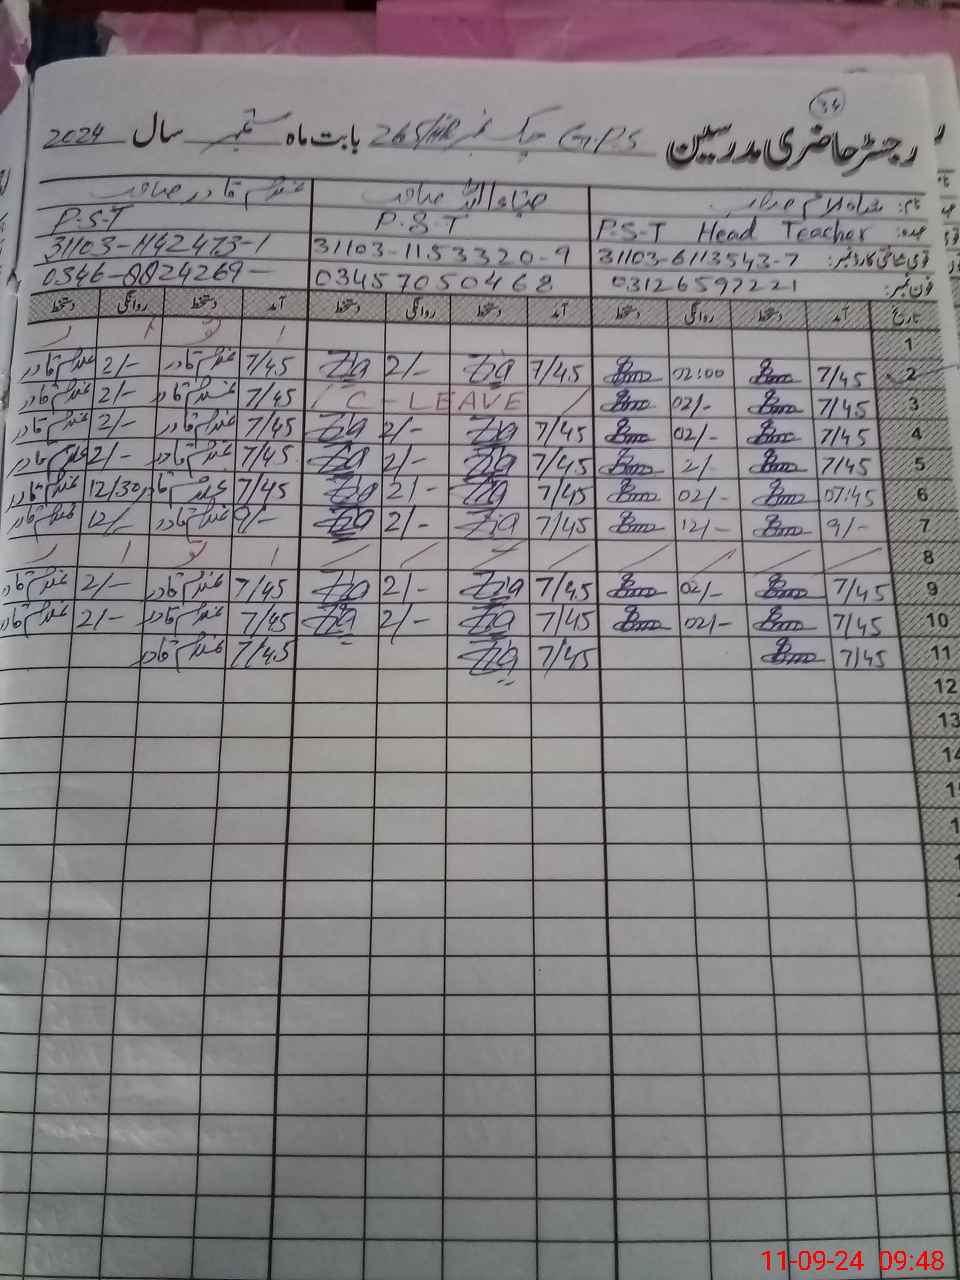 34
رجسٹر حاضری مدرسین G.P.S چک نمبر 265/HR بابت ماہ ستمبر سال 2024
نام: صاحب ضیاء اللہ صاحب غلام قادر صاحب
عہدہ: P.S.T Head Teacher P.S.T P.S.T
قومی شناختی کارڈ نمبر: 31103-6113543-7 31103-1153320-9 31103-1142473-1
فون نمبر: 03126597221 03457050468 0346-8824269
تاریخ آمد دستخط روانگی دستخط آمد دستخط روانگی دستخط آمد دستخط روانگی دستخط
1 ا تو ا ر
2 7/45 02:00 7/45 Zia 2/- Zia 7/45 غلام قادر 2/- غلام قادر
3 7/45 02/- C-LEAVE 7/45 غلام قادر 2/- غلام قادر
4 7/45 02/- 7/45 Zia 2/- Zia 7/45 غلام قادر 2/- غلام قادر
5 7/45 2/- 7/45 Zia 2/- Zia 7/45 غلام قادر 2/- غلام قادر
6 07:45 02/- 7/45 Zia 2/- Zia 7/45 غلام قادر 12/30 غلام قادر
7 9/- 12/- 7/45 Zia 2/- Zia 9/- غلام قادر 12/- غلام قادر
8 ا تو ا ر
9 7/45 02/- 7/45 Zia 2/- Zia 7/45 غلام قادر 2/- غلام قادر
10 7/45 02/- 7/45 Zia 2/- Zia 7/45 غلام قادر 2/- غلام قادر
11 7/45 7/45 Zia 7/45 غلام قادر
12
13
11-09-24 09:48